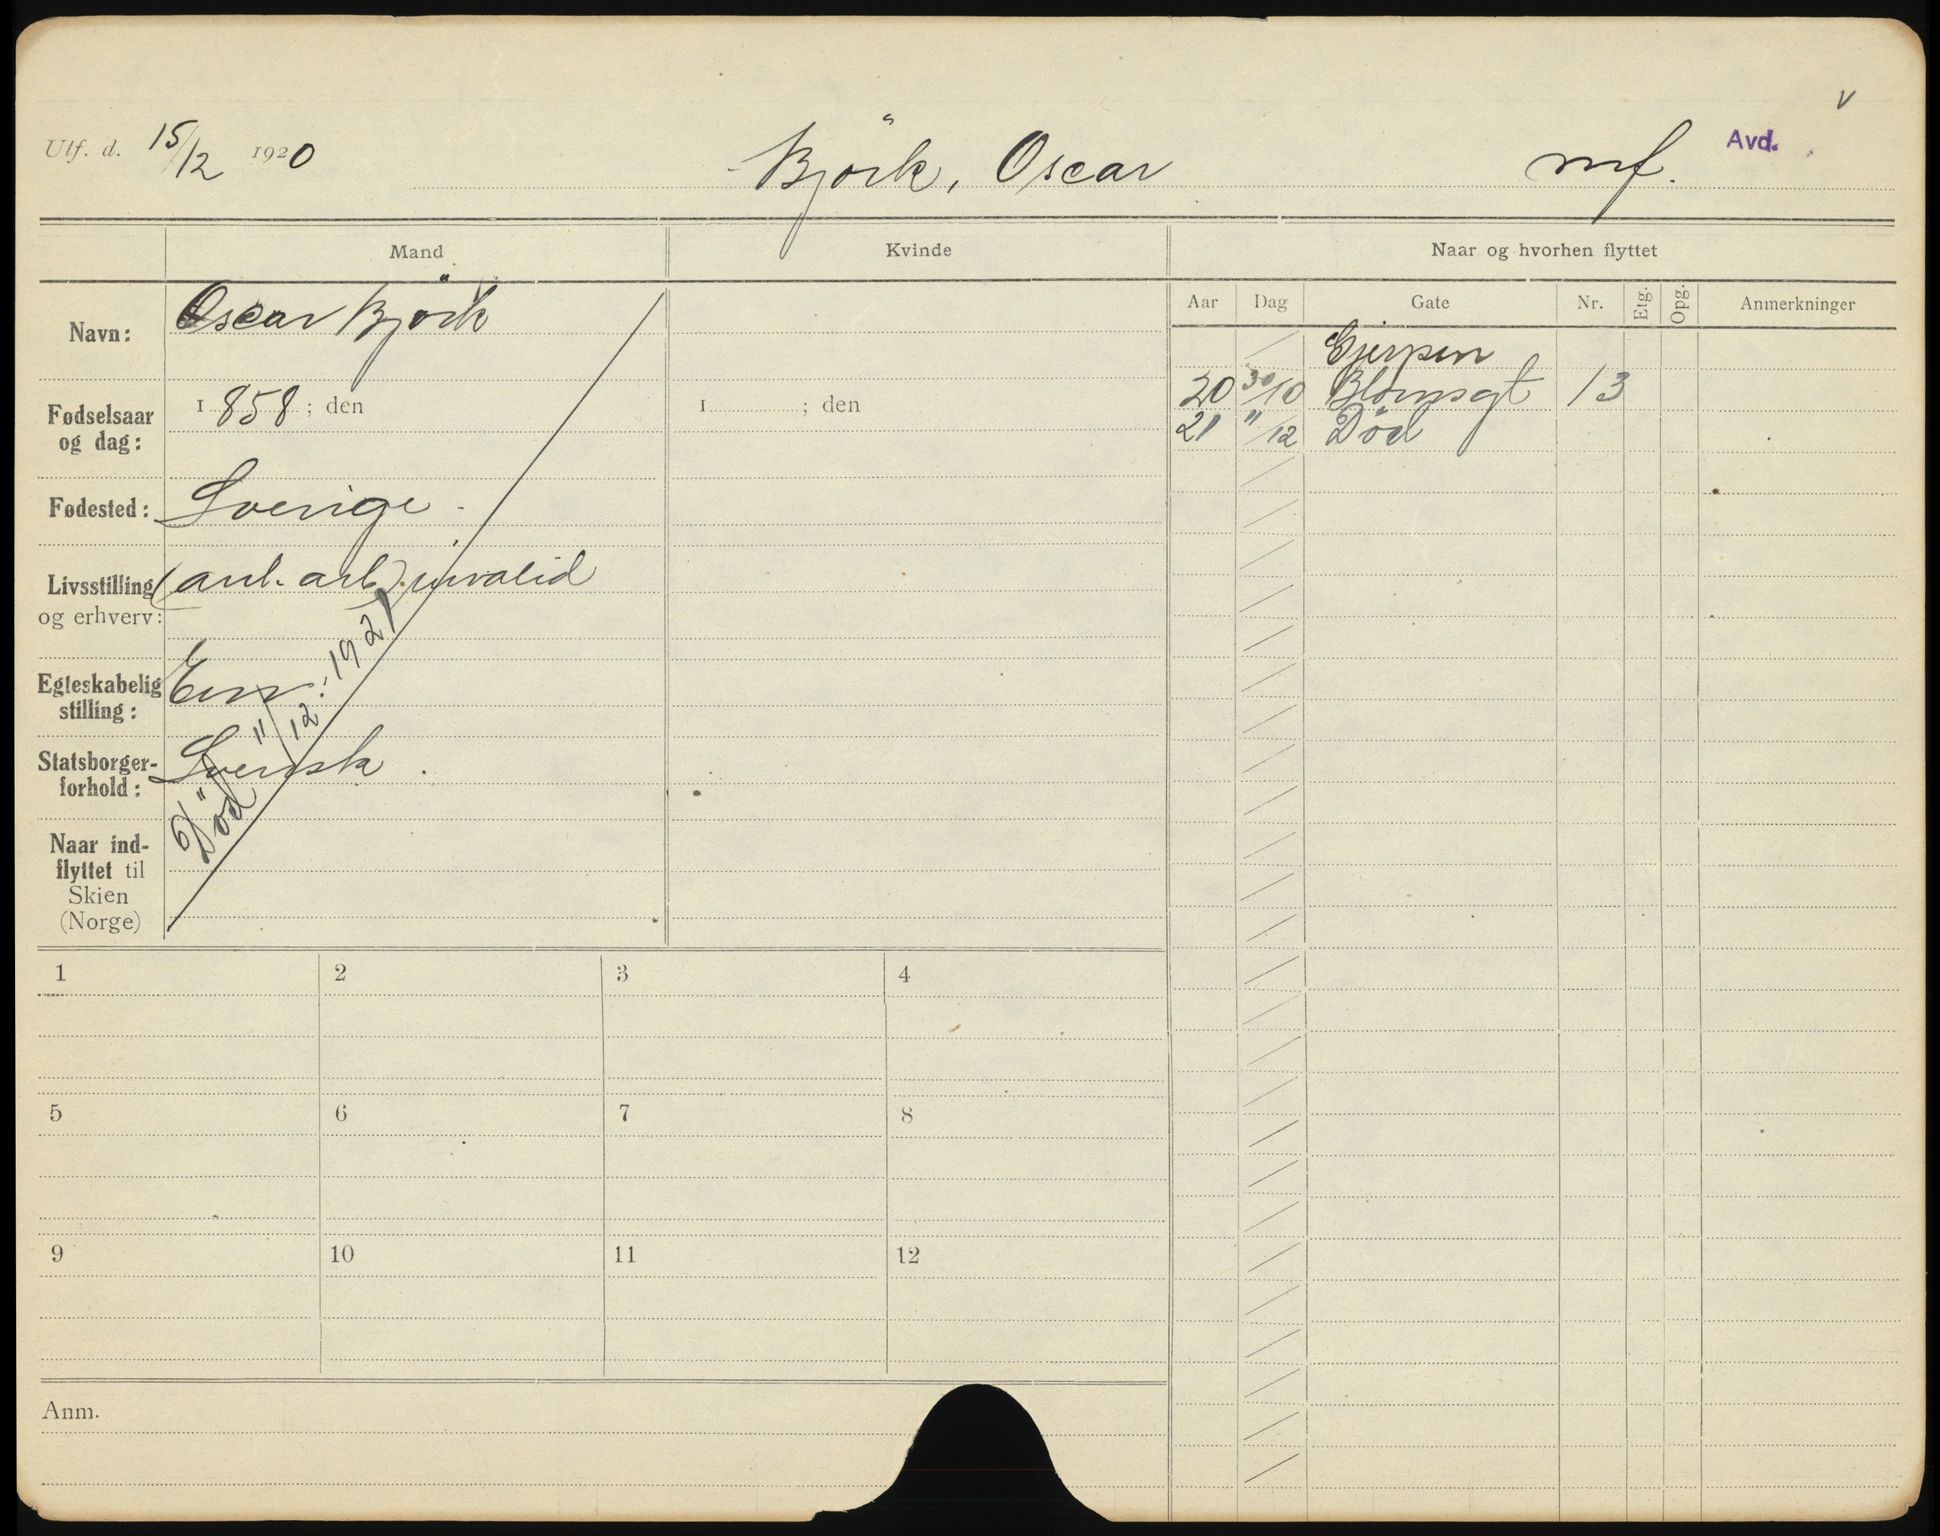 v
Utf. d. 15/12 1920 Björk, Oscar mf. Avd.
Mand Kvinde Naar og hvorhen flyttet
Aar Dag Gate Nr. Etg. Opg. Anmerkninger
Navn: Oscar Björk
Gjerpen
20 30/10 Blomsgt 13
21 "/12 Död
Fødselsaar og dag: 1858; den 1 ; den
Fødested: Sverige
Livsstilling og erhverv: (anl. arb.) invalid
Egteskabelig stilling: Enm
Statsborger-forhold: Svensk.
Naar ind-flyttet til Skien (Norge)
Död "/12 1921
1 2 3 4
5 6 7 8
9 10 11 12
Anm.